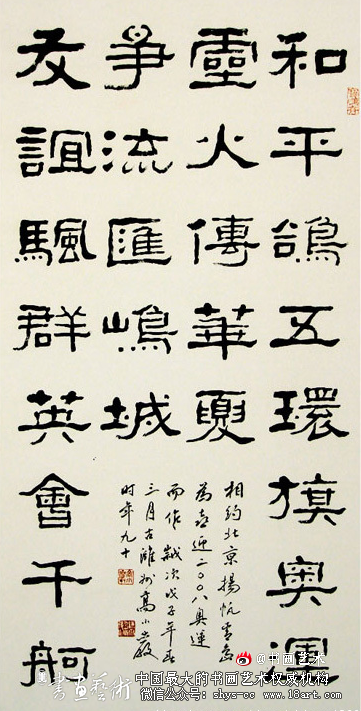 和平鴿五環旗奧運
靈火傳華夏
爭流匯嶋城
友誼颿群英會千舸
相約北京揚帆青島
為喜迎二〇〇八奧運
而作 歲次戊子年春
三月古濰州高小巖
时年九十
@书画艺术
書画藝術
中国最大的书画艺术权威机构
微信公众号: shys-cc www.18art.com